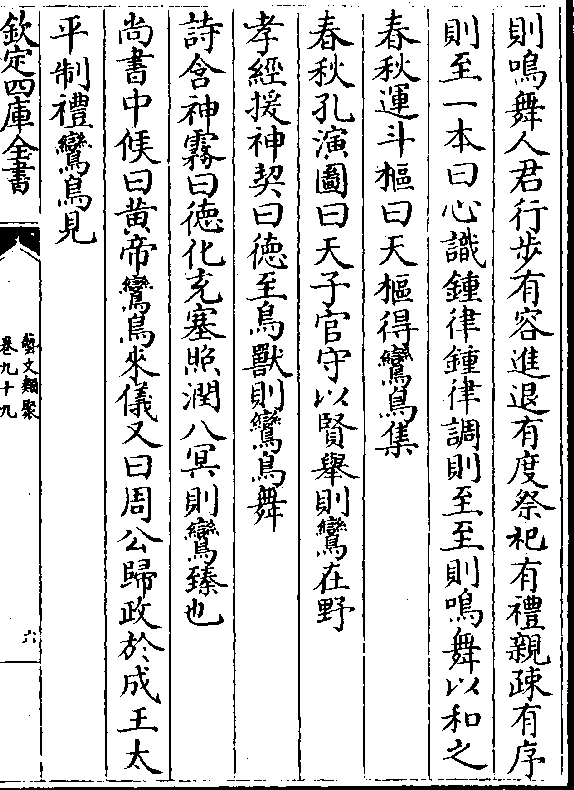 則鳴舞人君行步有容進退有度祭祀有禮親疎有序
則至一本曰心識鍾律鍾律調則至至則鳴舞以和之
春秋運斗樞曰天樞得鸞鳥集
春秋孔演圖曰天子官守以賢舉則鸞在野
孝經援神契曰德至鳥獸則鸞鳥舞
詩含神霧曰德化充塞照潤八冥則鸞臻也
尚書中候曰黄帝鸞鳥來儀又曰周公歸政於成王太
平制禮鸞鳥見
欽定四庫全書
藝文類聚
卷九十九
六